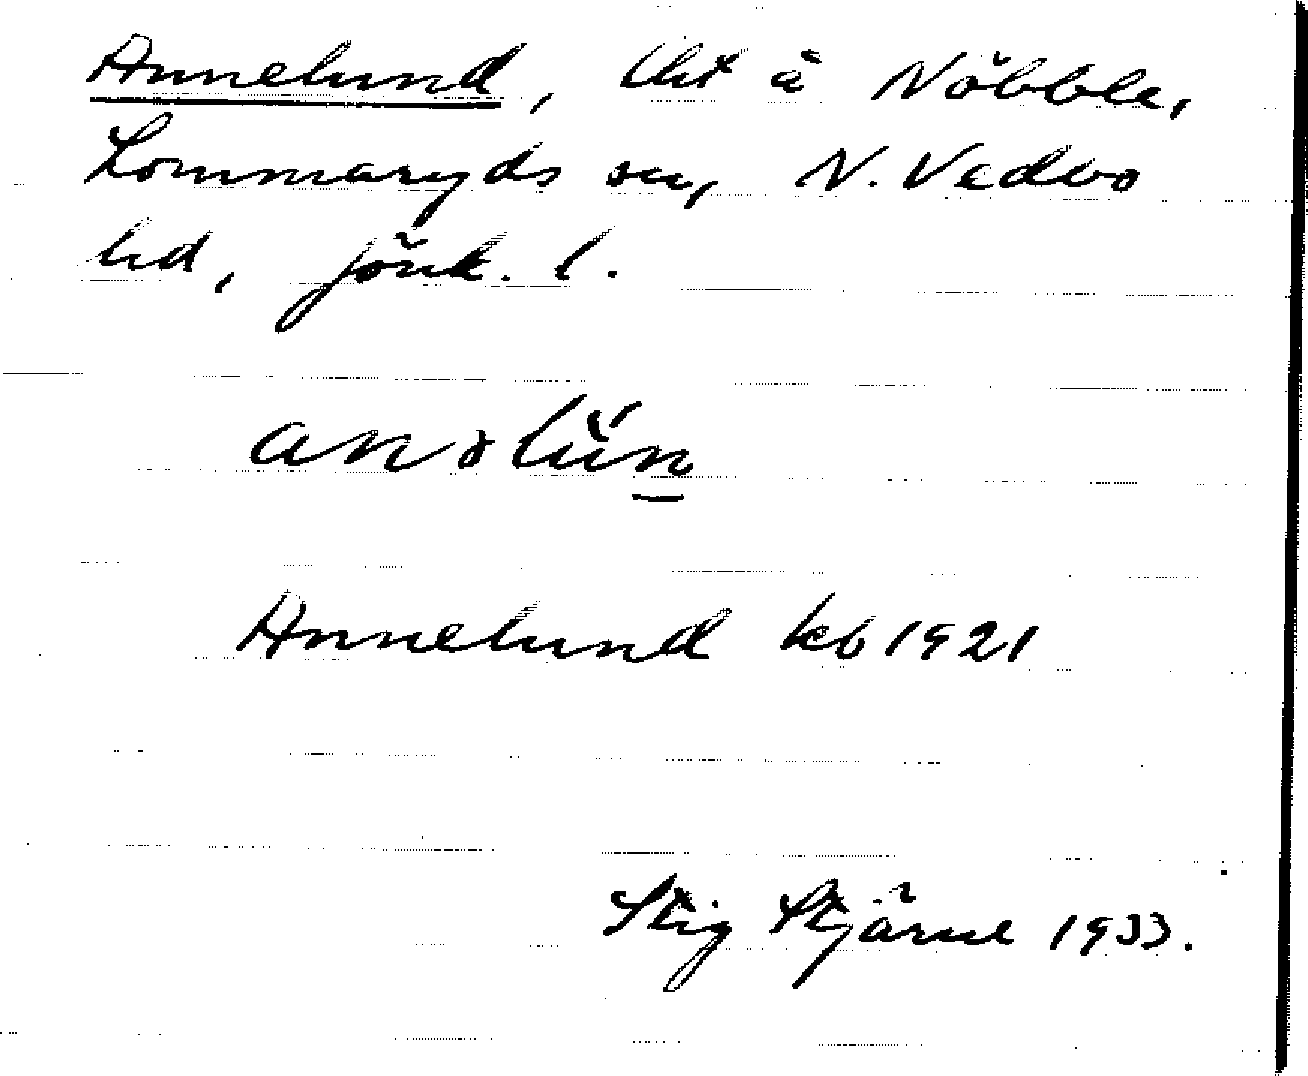 Annelund, lht å Nöbble,
Lommaryds sn, N. Vedbo
hd, Jönk. l.
Annelund kb 1921
Stig Stjärne 1933.